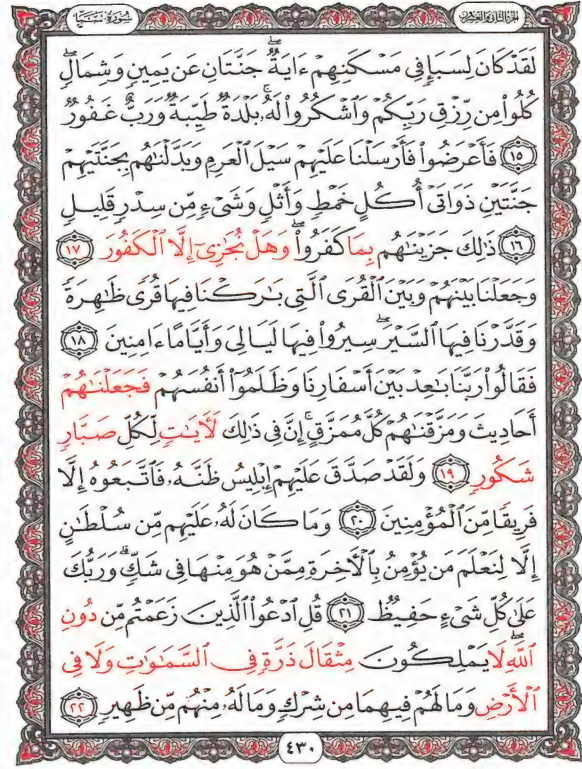 سُورَةُ سَبَإٍ
الجزء الثاني والعشرون
لَقَدْ كَانَ لِسَبَإٍ فِى مَسْكَنِهِمْ ءَايَةٌ ۖ جَنَّتَانِ عَن يَمِينٍ وَشِمَالٍ ۖ
كُلُوا۟ مِن رِّزْقِ رَبِّكُمْ وَٱشْكُرُوا۟ لَهُۥ ۚ بَلْدَةٌ طَيِّبَةٌ وَرَبٌّ غَفُورٌ
١٥ فَأَعْرَضُوا۟ فَأَرْسَلْنَا عَلَيْهِمْ سَيْلَ ٱلْعَرِمِ وَبَدَّلْنَـٰهُم بِجَنَّتَيْهِمْ
جَنَّتَيْنِ ذَوَاتَىْ أُكُلٍ خَمْطٍ وَأَثْلٍ وَشَىْءٍ مِّن سِدْرٍ قَلِيلٍ
١٦ ذَٰلِكَ جَزَيْنَـٰهُم بِمَا كَفَرُوا۟ ۖ وَهَلْ نُجَـٰزِىٓ إِلَّا ٱلْكَفُورَ ١٧
وَجَعَلْنَا بَيْنَهُمْ وَبَيْنَ ٱلْقُرَى ٱلَّتِى بَـٰرَكْنَا فِيهَا قُرًى ظَـٰهِرَةً
وَقَدَّرْنَا فِيهَا ٱلسَّيْرَ ۖ سِيرُوا۟ فِيهَا لَيَالِىَ وَأَيَّامًا ءَامِنِينَ ١٨
فَقَالُوا۟ رَبَّنَا بَـٰعِدْ بَيْنَ أَسْفَارِنَا وَظَلَمُوٓا۟ أَنفُسَهُمْ فَجَعَلْنَـٰهُمْ
أَحَادِيثَ وَمَزَّقْنَـٰهُمْ كُلَّ مُمَزَّقٍ ۚ إِنَّ فِى ذَٰلِكَ لَـَٔايَـٰتٍ لِّكُلِّ صَبَّارٍ
شَكُورٍ ١٩ وَلَقَدْ صَدَّقَ عَلَيْهِمْ إِبْلِيسُ ظَنَّهُۥ فَٱتَّبَعُوهُ إِلَّا
فَرِيقًا مِّنَ ٱلْمُؤْمِنِينَ ٢٠ وَمَا كَانَ لَهُۥ عَلَيْهِم مِّن سُلْطَـٰنٍ
إِلَّا لِنَعْلَمَ مَن يُؤْمِنُ بِٱلْـَٔاخِرَةِ مِمَّنْ هُوَ مِنْهَا فِى شَكٍّ ۗ وَرَبُّكَ
عَلَىٰ كُلِّ شَىْءٍ حَفِيظٌ ٢١ قُلِ ٱدْعُوا۟ ٱلَّذِينَ زَعَمْتُم مِّن دُونِ
ٱللَّهِ ۖ لَا يَمْلِكُونَ مِثْقَالَ ذَرَّةٍ فِى ٱلسَّمَـٰوَٰتِ وَلَا فِى
ٱلْأَرْضِ وَمَا لَهُمْ فِيهِمَا مِن شِرْكٍ وَمَا لَهُۥ مِنْهُم مِّن ظَهِيرٍ ٢٢
٤٣٠